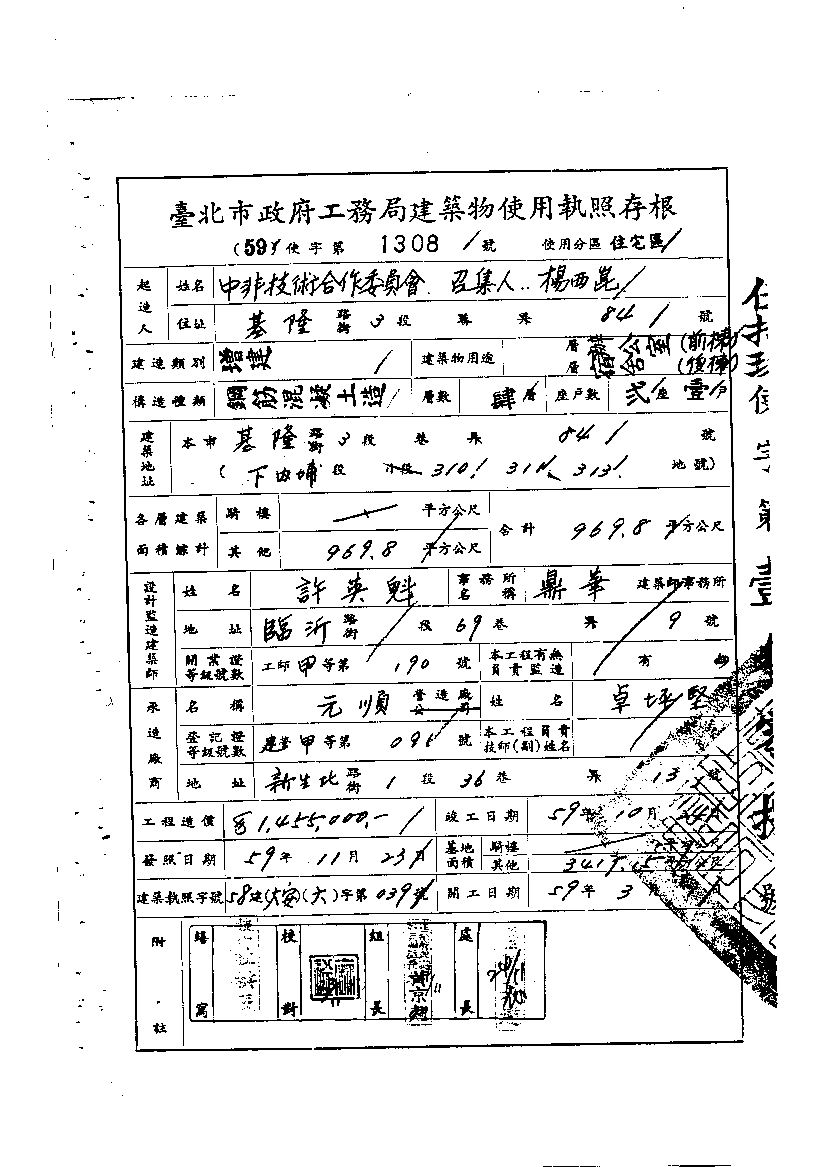 臺北市政府工務局建築物使用執照存根
(59)使字第 1308 號 使用分區 住宅區
起造人 姓名 中非技術合作委員會 召集人..楊西崑
住址 基隆 路街 3 段 巷 弄 84 號
建造類別 增建 建築物用途 層 辦公室(前棟)
層 宿舍(後棟)
構造種類 鋼筋混凝土造 層數 肆 層 座戶數 弍 座 壹 戶
建築地址 本市 基隆 路街 3 段 巷 弄 84 號
(下內埔 段 小段 310. 311. 313. 地號)
各層建築面積總計 騎樓 平方公尺 合計 969.8 平方公尺
其他 969.8 平方公尺
設計監造建築師 姓名 許英魁 事務所名稱 鼎華 建築師事務所
地址 臨沂 路街 段 69 巷 弄 9 號
開業證等級號數 工師 甲 等第 190 號 本工程有無負責監造 有
承造廠商 名稱 元順 營造廠公司 姓名 卓坪堅
登記證等級號數 建登 甲 等第 096 號 本工程負責技師(副)姓名
地址 新生北 路街 1 段 36 巷 弄 13 號
工程造價 1,455,000,- 竣工日期 59年 10月
發照日期 59年 11月 23日 基地面積 騎樓
其他
建築執照字號 58建(大安)(六)字第 039 號 開工日期 59年 3月
附註 繕寫 校對 組長 處長